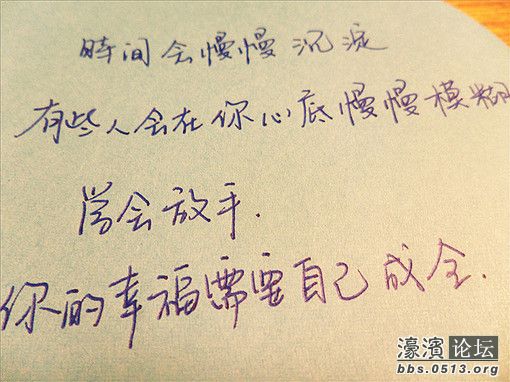 時间会慢慢沉淀
有些人会在你心底慢慢模糊
学会放手.
你的幸福需要自己成全.
濠濱论坛
bbs.0513.org